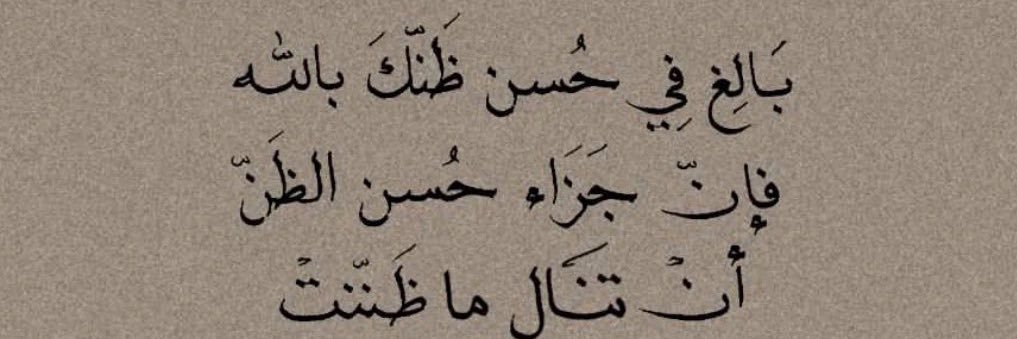 بَالِغ فِي حُسن ظَنّكَ بالله
فإنّ جَزَاء حُسن الظَنّ
أنْ تنَال ما ظَنّنتْ